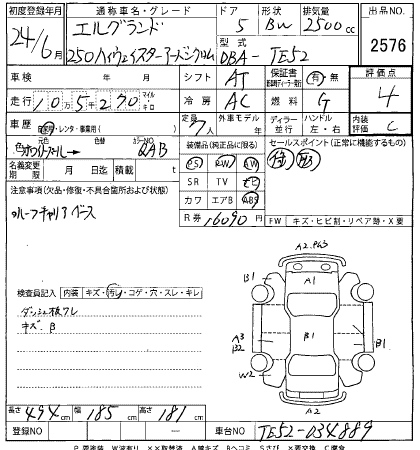 初度登録年月 通称車名・グレード ドア 形状 排気量 出品NO.
24/6月 エルグランド 5 BW 2500cc 2576
250ハイウェイスターアーバンクロム 型式 DBA-TE52
車検 年 月 シフト AT 保証書 有・無 評価点 4
走行 10万5千270 マイル キロ 冷房 AC 燃料 G
車歴 自家用・レンタ・事業用( ) 定員 7人 外車モデル年 ディーラー 並行 ハンドル 左・右 内装評価 C
色 元色 ホワイトパール 色替 カラーNO. QAB 装備品(純正品に限る) セールスポイント(正常に機能するもの)
名義変更期限 月 日迄 積載量 t PS PW AW
注意事項(欠品・修復・不具合箇所および状態) SR TV ナビ
ルーフキャリアベース カワ エアB ABS
R券 16090円 FW キズ・ヒビ割・リペア跡・X要
A2.PX3
B1 A1
検査員記入 内装 キズ・汚れ・コゲ・穴・スレ・キレ
ダッシュ板ワレ
キズ B
A3 B2 B1 B1
W2
A2
長さ 494cm 幅 185cm 高さ 181cm
登録NO 車台NO TE52-034889
P 要塗装 W波有り ××取替済 A線キズ Bヘコミ Sサビ ×要交換 C腐食